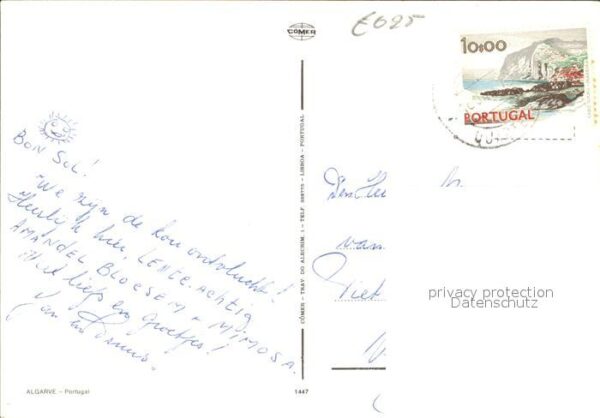 CÓMER
E025
10$00
PORTUGAL
BON SOL!
"We zijn de kou ontvlucht!
Heerlijk hier, LENTE-ACHTIG
AMANDEL BLOESEM + MIMOSA.
liefs en Groetjes!
Jan en
CÓMER - TRAV. DO ALECRIM, 1 - TELF. - LISBOA - PORTUGAL
van
privacy protection
Datenschutz
ALGARVE - Portugal
1447